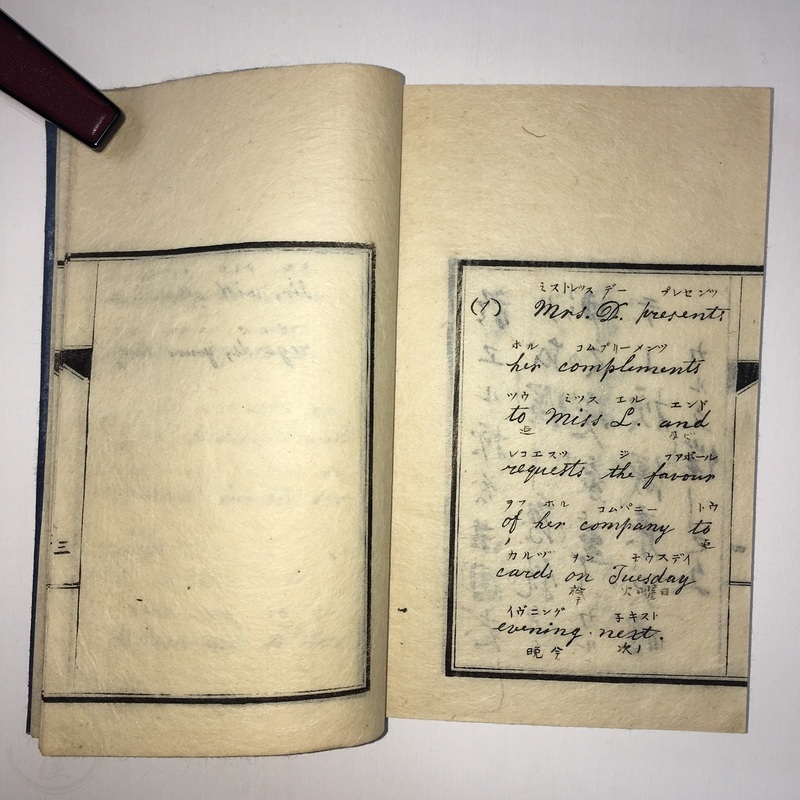 三
ミストレッス デー プレセンツ
(1) Mrs. D. presents
ホル コムプリーメンツ
her complements
ツウ ミツス エル エンド
to Miss L. and
レコエスツ ジ ファボール
requests the favour
ヲフ ホル コムパニー トウ
of her company to
カルヅ ヲン チウスデイ
cards on Tuesday
火曜日
イヴニング 子キスト
evening next.
晩今 次ノ